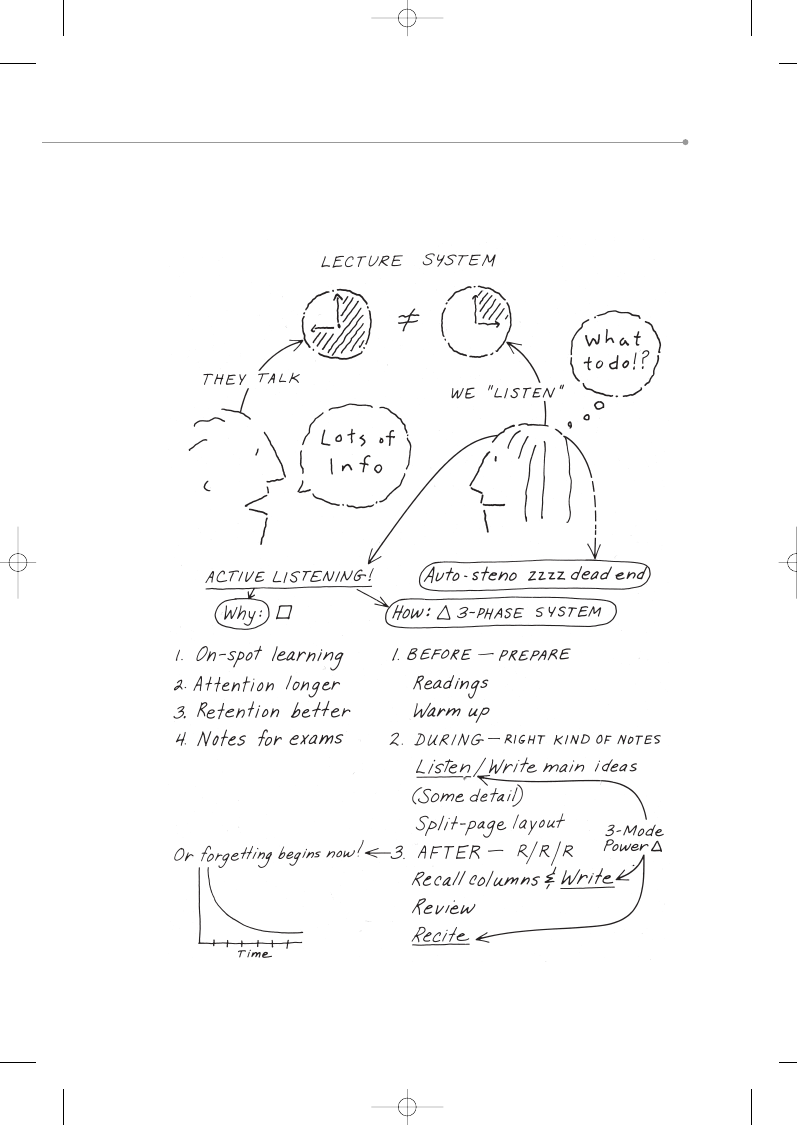 LECTURE SYSTEM
≠
What
to do!?
THEY TALK
WE "LISTEN"
Lots of
Info
ACTIVE LISTENING!
Auto-steno zzzz dead end
Why: □
How: △ 3-PHASE SYSTEM
1. On-spot learning
2. Attention longer
3. Retention better
4. Notes for exams
1. BEFORE — PREPARE
Readings
Warm up
2. DURING — RIGHT KIND OF NOTES
Listen/Write main ideas
(Some detail)
Split-page layout
3-Mode
Power △
Or forgetting begins now!
3. AFTER — R/R/R
Recall columns & Write
Review
Recite
Time